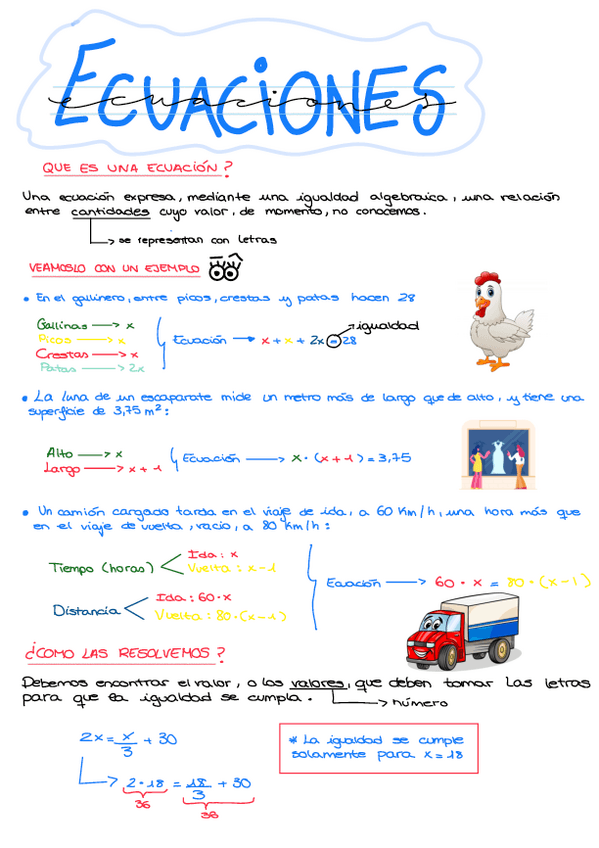 ECUACIONES
ecuaciones
QUE ES UNA ECUACIÓN?
Una ecuación expresa, mediante una igualdad algebraica, una relación
entre cantidades cuyo valor, de momento, no conocemos.
se representan con letras
VEAMOSLO CON UN EJEMPLO
• En el gallinero, entre picos, crestas y patas hacen 28
Gallinas → x
Picos → x
Crestas → x
Patas → 2x
Ecuación → x + x + 2x = 28
igualdad
• La luna de un escaparate mide un metro más de largo que de alto, y tiene una
superficie de 3,75 m²:
Alto → x
Largo → x + 1
Ecuación → x · (x + 1) = 3,75
• Un camión cargado tarda en el viaje de ida, a 60 Km/h, una hora más que
en el viaje de vuelta, vacio, a 80 Km/h:
Tiempo (horas)
Ida: x
Vuelta: x-1
Distancia
Ida: 60·x
Vuelta: 80·(x-1)
Ecuación → 60 · x = 80·(x-1)
¿COMO LAS RESOLVEMOS?
Debemos encontrar el valor, o los valores, que deben tomar las letras
para que la igualdad se cumpla.
número
2x = x/3 + 30
2·18 = 18/3 + 30
36
38
* La igualdad se cumple
solamente para x = 18